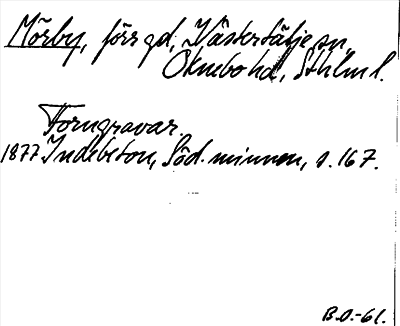 Mörby, förs gd, Västertälje sn,
Öknebo hd, Sthlm l.
Forngravar.
1877 Indebetou, Söd. minnen, s. 167.
B.O.-61.